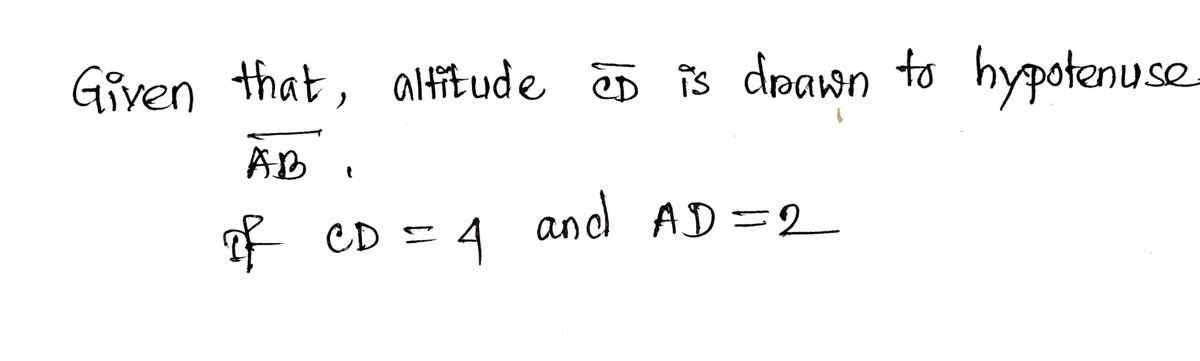 Given that, altitude CD is drawn to hypotenuse
AB.
If CD = 4 and AD = 2